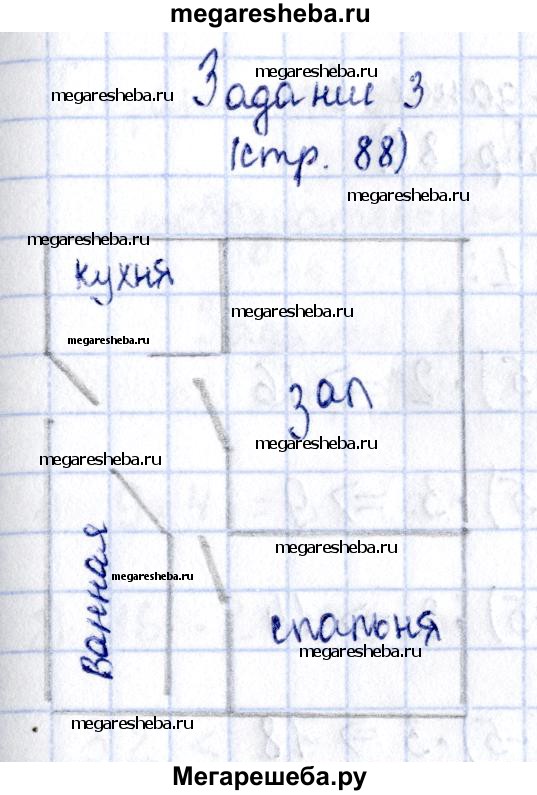 megaresheba.ru
megaresheba.ru
megaresheba.ru
Задание 3
(стр. 88)
megaresheba.ru
megaresheba.ru
кухня
megaresheba.ru
megaresheba.ru
зал
megaresheba.ru
megaresheba.ru
megaresheba.ru
Ванная
megaresheba.ru
спальня
megaresheba.ru
megaresheba.ru
Мегарешеба.ру